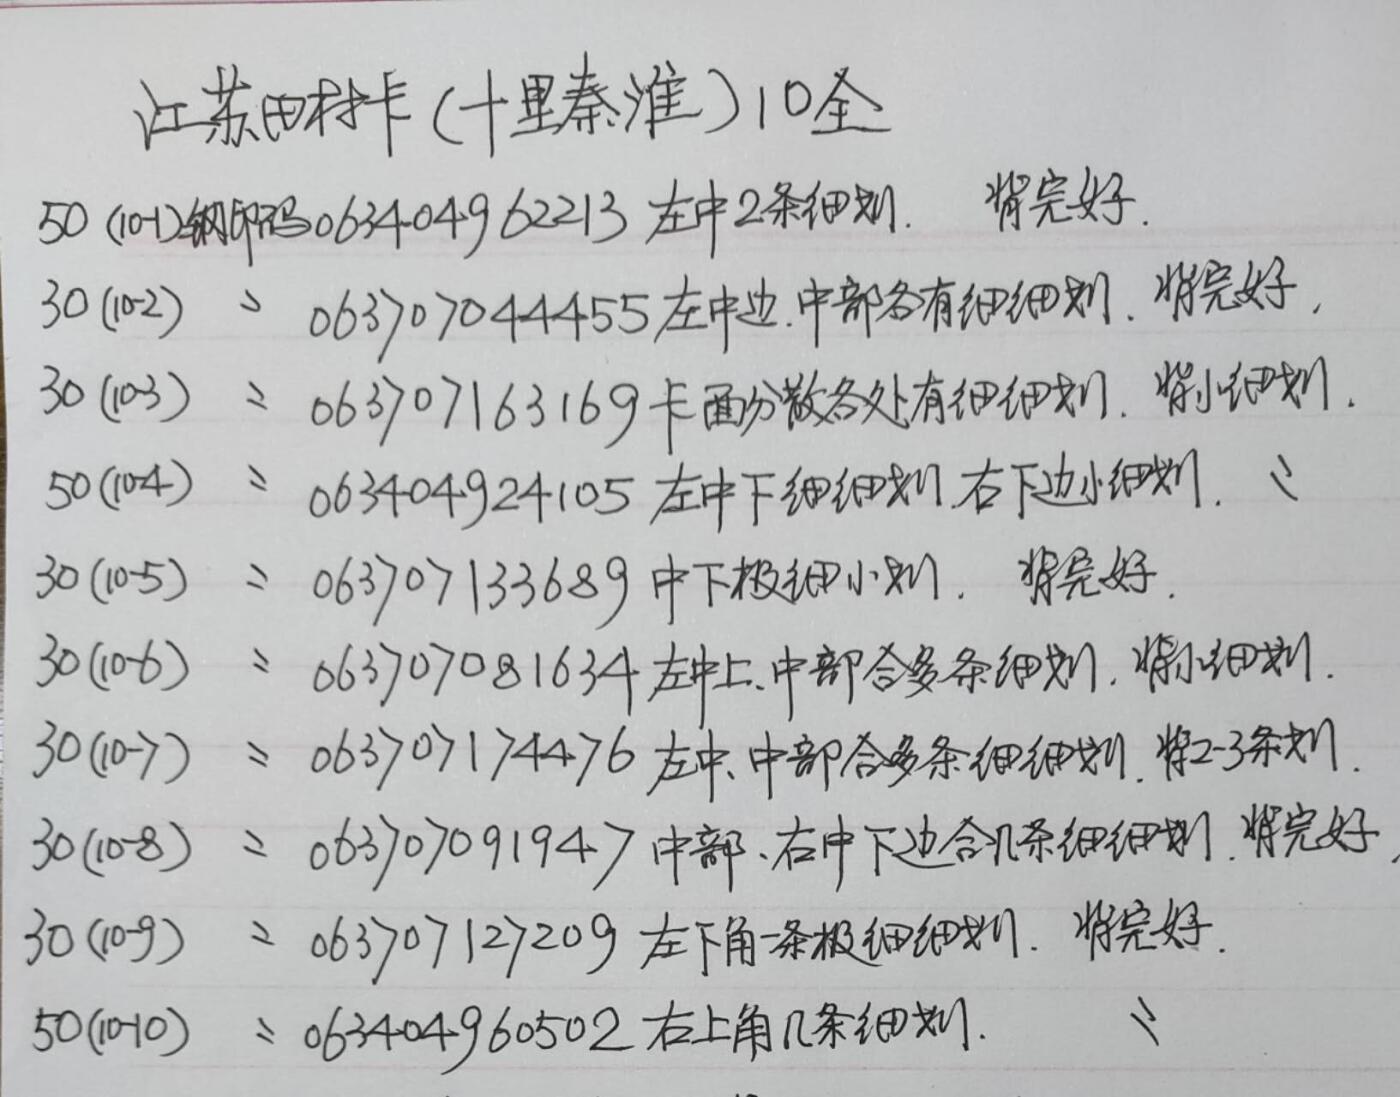 江苏田村卡(十里秦淮)10全
50(10-1)钢印码063404962213左中2条细划. 背完好.
30(10-2) 〃 063707044455左中边.中部各有细细划. 背完好,
30(10-3) 〃 063707163169卡面分散各处有细细划. 背小细划.
50(10-4) 〃 063404924105左中下细细划.右下边小细划. 〃
30(10-5) 〃 063707133689中下极细小划. 背完好.
30(10-6) 〃 063707081634左中上、中部合多条细划. 背小细划.
30(10-7) 〃 063707174476左中、中部合多条细细划. 背2-3条划.
30(10-8) 〃 063707091947中部、右中下边合几条细细划. 背完好,
30(10-9) 〃 063707127209左下角一条极细细划. 背完好.
50(10-10) 〃 063404960502右上角几条细划. 〃